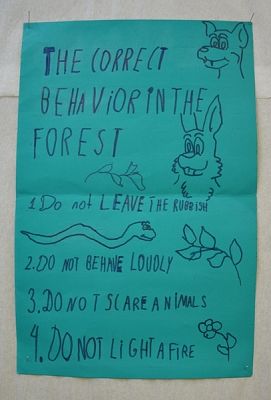 THE CORRECT
BEHAVIOR IN THE
FOREST
1. Do not LEAVE THE RUBBISH
2. DO NOT BEHAVE LOUDLY
3. DO NOT SCARE ANIMALS
4. DO NOT LIGHT A FIRE